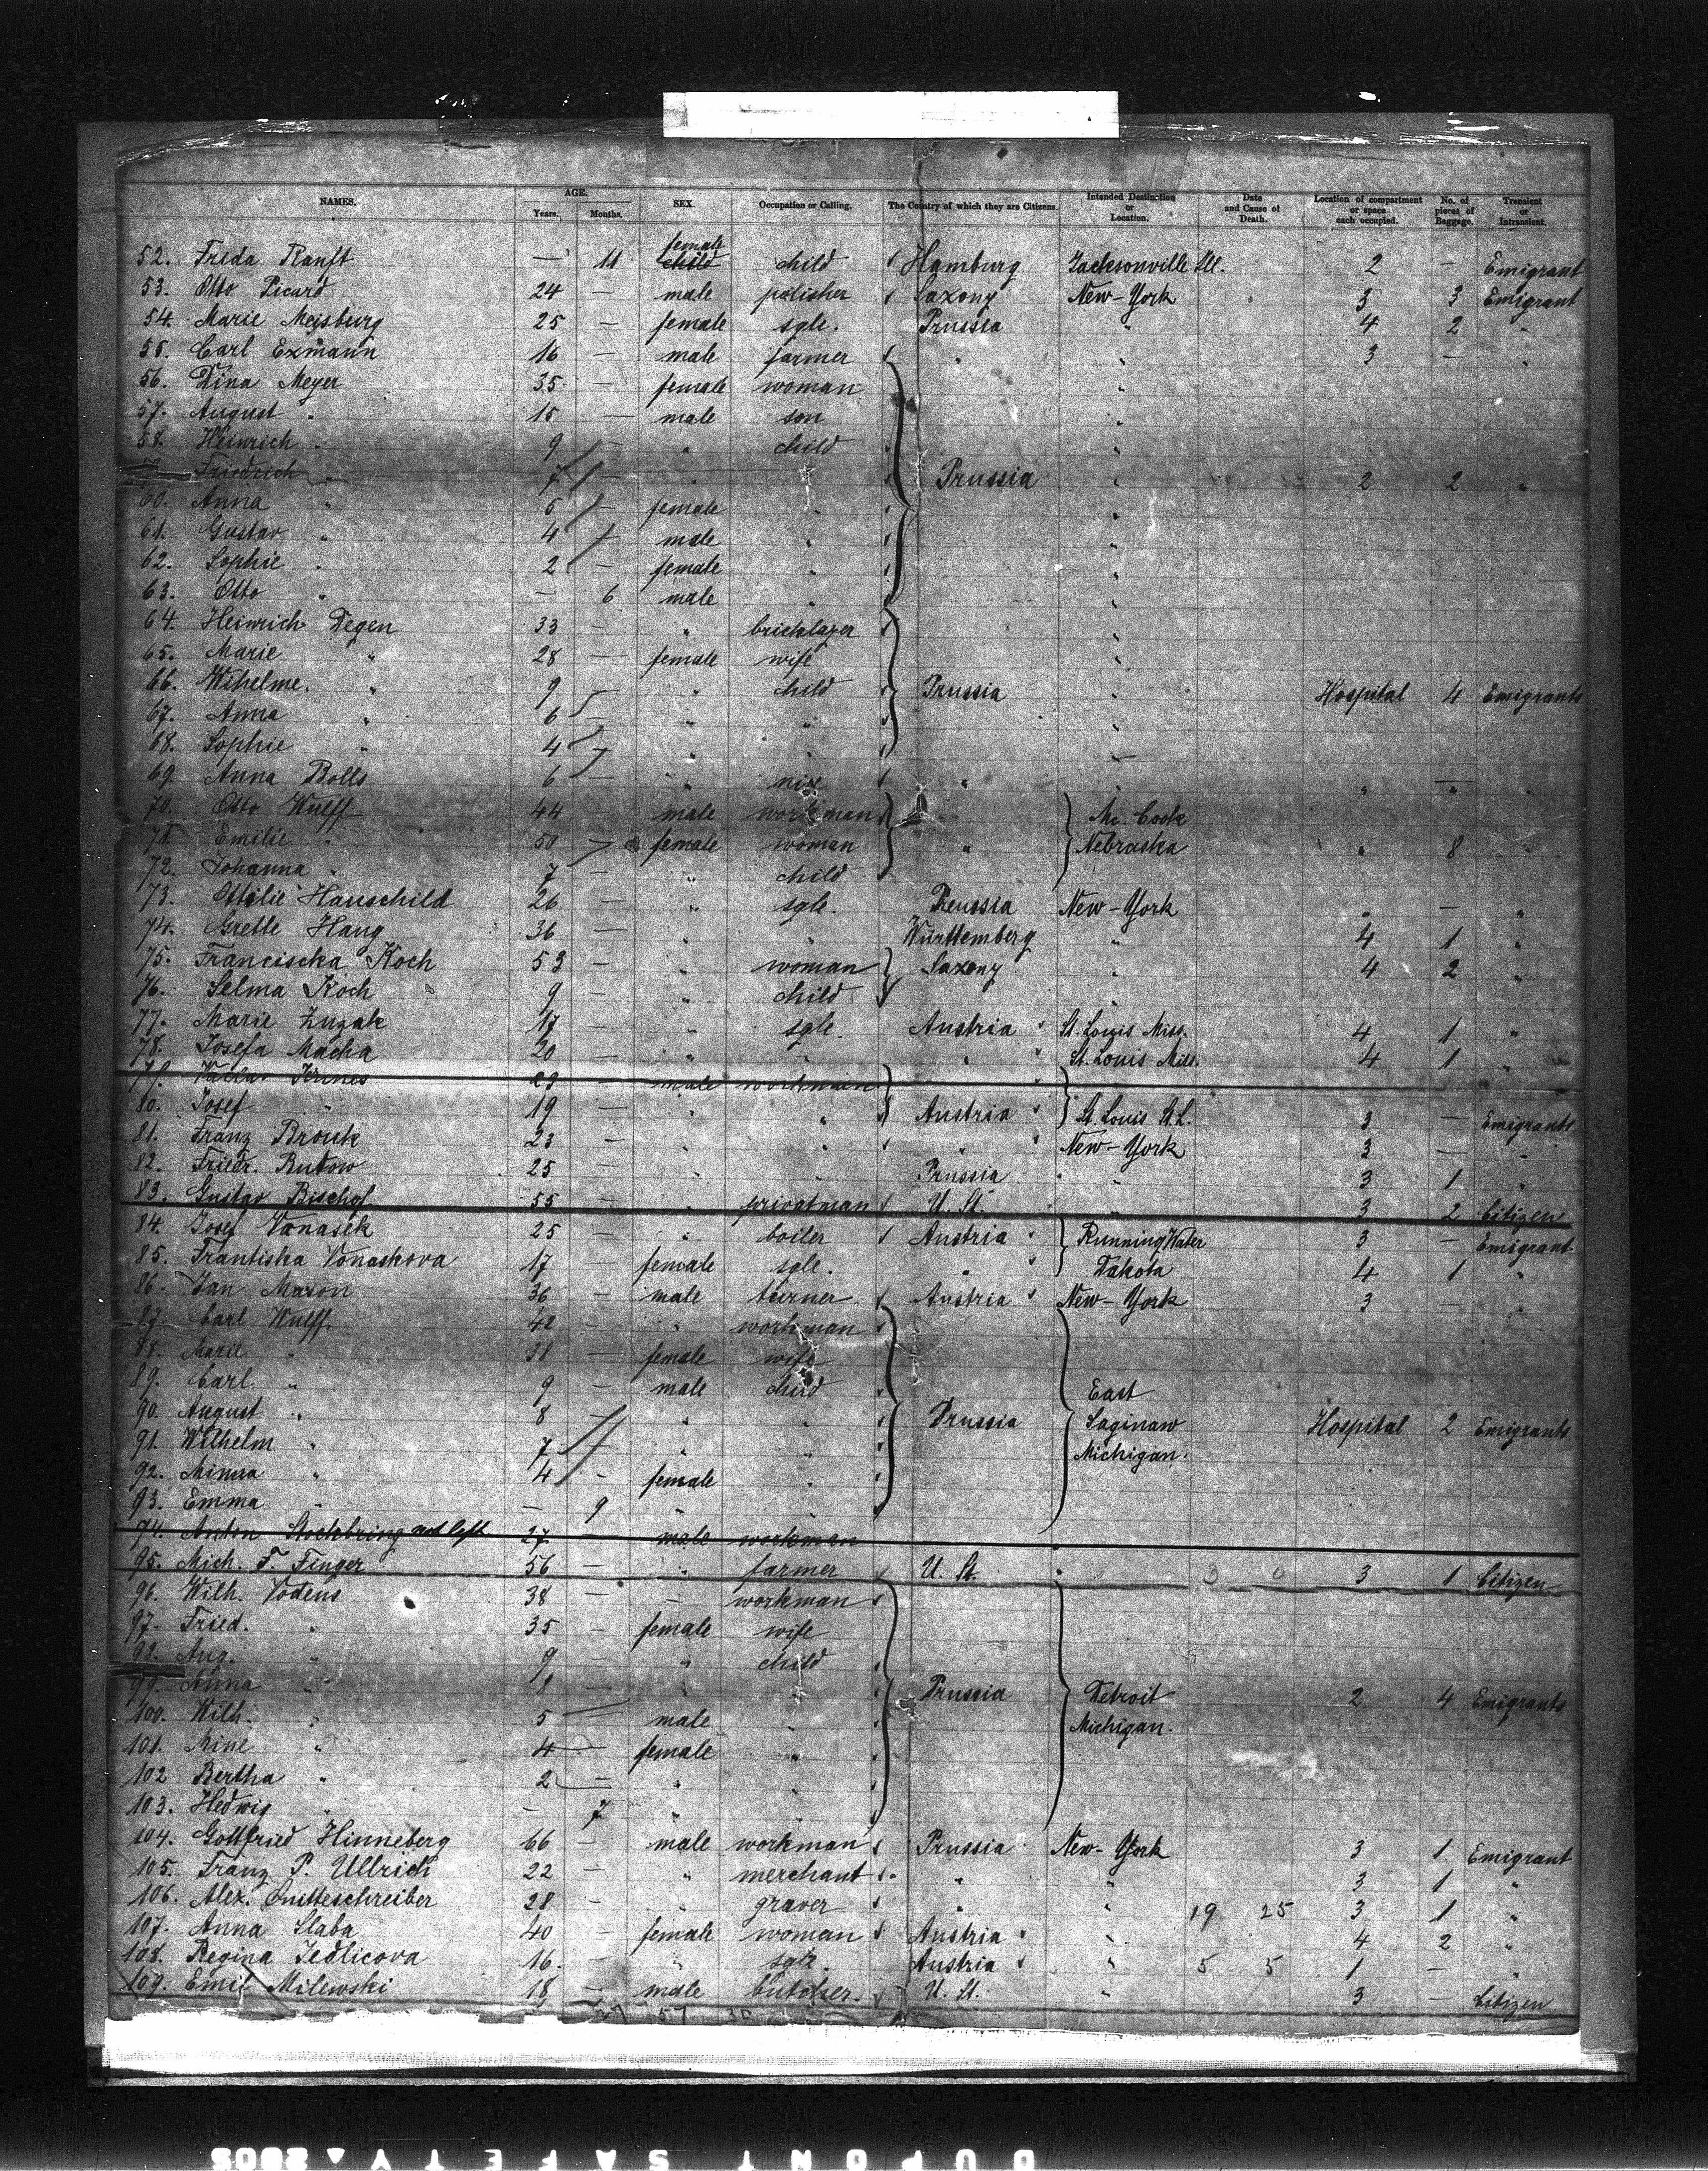 NAMES. AGE. Years. Months. SEX. Occupation or Calling. The Country of which they are Citizens. Intended Destination or Location. Date and Cause of Death. Location of compartment or space each occupied. No. of pieces of Baggage. Transient or Intransient.
52. Frida Ranft — 11 female child child Hamburg Jacksonville Ill. 2 — Emigrant
53. Otto Picard 24 — male polisher Saxony New-York 3 3 Emigrant
54. Marie Meisburg 25 — female sgle. Prussia " 4 2 "
55. Carl Exmann 16 — male farmer " " 3 — "
56. Dina Meyer 35 — female woman "
57. August " 15 — male son "
58. Heinrich " 9 — " child "
59. Friedrich " 7 — " " Prussia " 2 2 "
60. Anna " 5 — female " "
61. Gustav " 4 — male " "
62. Sophie " 2 — female " "
63. Otto " — 6 male " "
64. Heinrich Degen 33 — " bricklayer "
65. Marie " 28 — female wife "
66. Wihelme. " 9 — " child Prussia " Hospital 4 Emigrants
67. Anna " 6 — " " "
68. Sophie " 4 — " " "
69. Anna Bolls 6 — " " " " — "
70. Otto Wulff 44 — male workman Mc. Cook
71. Emilie " 50 — female woman " Nebraska " 8 "
72. Johanna " 7 — " child
73. Ottilie Hauschild 26 — " sgle. Preussia New-York " — "
74. Grette Haug 36 — " " Württemberg " 4 1 "
75. Francischa Koch 53 — " woman Saxony " 4 2 "
76. Selma Koch 9 — " child "
77. Marie Zuzak 17 — " sgle. Austria St. Louis Miss. 4 1 "
78. Josefa Macha 20 — " " " St. Louis Miss. 4 1 "
79. Vaclav 29 — male workman
80. Josef " 19 — " " Austria St. Louis St. L. 3 — Emigrants
81. Franz Brouk 23 — " " " New-York 3 — "
82. Friedr. Butow 25 — " " Prussia " 3 1 "
83. Gustav Bischof 55 — " privatman U. St. " 3 2 Citizen
84. Josef Vonasek 25 — " boiler Austria Running Water 3 — Emigrant
85. Frantiska Vonaskova 17 — female sgle. " Dakota 4 1 "
86. Jan Mason 36 — male turner Austria New-York 3 — "
87. Carl Wulff 42 — " workman
88. Marie " 38 — female wife
89. Carl " 9 — male child East
90. August " 8 — " " Prussia Saginaw Hospital 2 Emigrants
91. Wilhelm " 7 — " " Michigan.
92. Minna " 4 — female "
93. Emma " — 9 " "
94. Anton Stockbring not left 27 — male workman
95. Mich. F. Finger 56 — " farmer U. St. " 3 1 Citizen
96. Wilh. Vodens 38 — — workman
97. Fried. " 35 — female wife
98. Aug. " 9 — " child
99. Anna " 8 — " " Prussia Detroit 2 4 Emigrants
100. Wilh. " 5 — male " Michigan.
101. Mine " 4 — female "
102 Bertha " 2 — " "
103. Hedwig " — 7 " "
104. Gottfried Hinneberg 66 — male workman Prussia New-York 3 1 Emigrant
105. Franz P. Ullrich 22 — " merchant " " 3 1 "
106. Alex. 28 — " graver " " 19 25 3 1 "
107. Anna Slaba 40 — female woman Austria " 4 2 "
108. Regina Jedlicova 16 — " sgle. Austria " 5 5 1 — "
109. Emil Milewski 18 — male butcher. U. St. " 3 — Citizen
27 57 30
DUPONT SAFETY